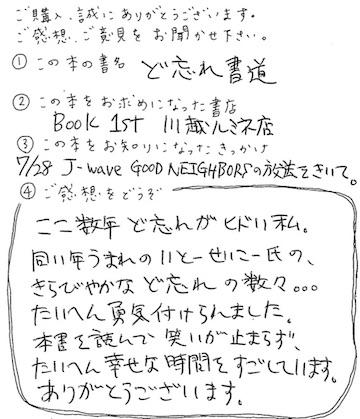 ご購入、誠にありがとうございます。
ご感想、ご意見をお聞かせ下さい。
① この本の書名 ど忘れ書道
② この本をお求めになった書店
Book 1st 川越ルミネ店
③ この本をお知りになったきっかけ
7/28 J-wave GOOD NEIGHBORSの放送をきいて。
④ ご感想をどうぞ
ここ数年ど忘れがヒドい私。
同い年うまれのいとーせいこー氏の、
きらびやかなど忘れの数々...
たいへん勇気付けられました。
本書を読んで笑いが止まらず、
たいへん幸せな時間をすごしています。
ありがとうございます。